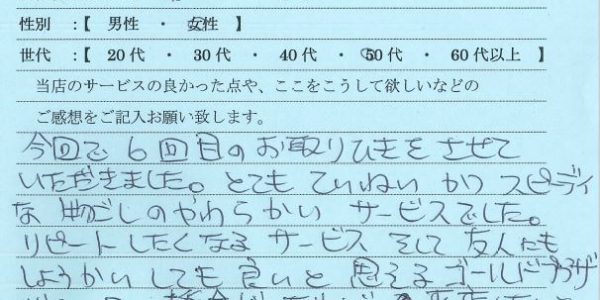 性別 :【 男性 ・ 女性 】
世代 :【 20代 ・ 30代 ・ 40代 ・ 50代 ・ 60代以上 】
当店のサービスの良かった点や、ここをこうして欲しいなどの
ご感想をご記入お願い致します。
今回で6回目のお取りひきをさせて
いただきました。とても ていねい かつ スピーディ
な 物ごしのやわらかい サービスでした。
リピートしたくなる サービス そして 友人たも
しょうかいしても 良いと 思える ゴールドプラザ